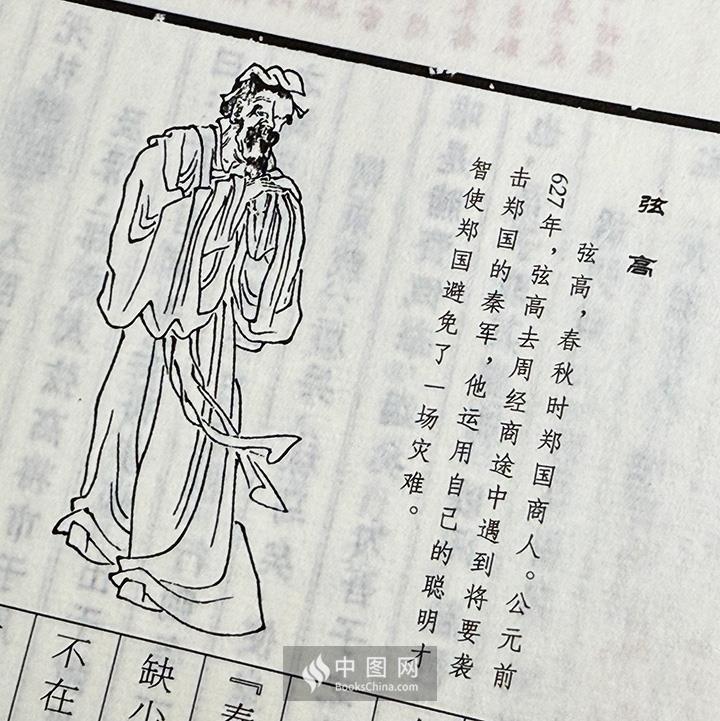 弦高
弦高，春秋时郑国商人。公元前
627年，弦高去周经商途中遇到将要袭
击郑国的秦军，他运用自己的聪明才
智使郑国避免了一场灾难。
『春
缺少
不在
中图网
BooksChina.com